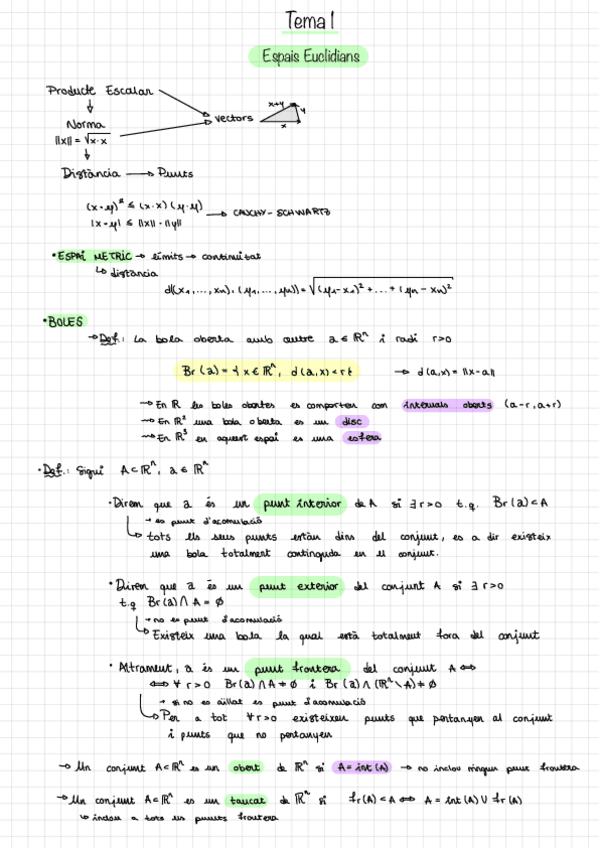 Tema 1
Espais Euclidians
Producte Escalar
Norma
||x|| = √x·x
vectors
x+y
y
x
Distància → Punts
(x·y)² ≤ (x·x)(y·y)
|x·y| ≤ ||x||·||y||
→ CAUCHY-SCHWARTZ
• ESPAI METRIC → límits → continuitat
↳ distància
d((x₁,...,xₙ),(y₁,...,yₙ)) = √(y₁-x₁)² + ... + (yₙ-xₙ)²
• BOLES
→ Def.: La bola oberta amb centre a ∈ ℝⁿ i radi r>0
Br(a) = { x ∈ ℝⁿ, d(a,x) < r } → d(a,x) = ||x-a||
→ En ℝ les boles obertes es comporten com intervals oberts (a-r, a+r)
→ En ℝ² una bola oberta es un disc
→ En ℝ³ en aquest espai es una esfera
• Def.: Sigui A ⊂ ℝⁿ, a ∈ ℝⁿ
• Direm que a és un punt interior de A si ∃ r>0 t.q. Br(a) ⊂ A
→ es punt d'acomulació
↳ tots els seus punts estàn dins del conjunt, es a dir existeix
una bola totalment continguda en el conjunt.
• Direm que a és un punt exterior del conjunt A si ∃ r>0
t.q Br(a) ∩ A = ∅
→ no es punt d'acomulació
↳ Existeix una bola la qual està totalment fora del conjunt
• Altrament, a és un punt frontera del conjunt A ⟺
⟺ ∀ r>0 Br(a) ∩ A ≠ ∅ i Br(a) ∩ (ℝⁿ \ A) ≠ ∅
→ si no es aïllat es punt d'acomulació
↳ Per a tot ∀ r>0 existeixen punts que pertanyen al conjunt
i punts que no pertanyen
→ Un conjunt A ⊂ ℝⁿ es un obert de ℝⁿ si A = int(A) → no inclou ningun punt frontera
→ Un conjunt A ⊂ ℝⁿ es un tancat de ℝⁿ si fr(A) ⊂ A ⟺ A = int(A) ∪ fr(A)
↳ inclou a tots els punts frontera